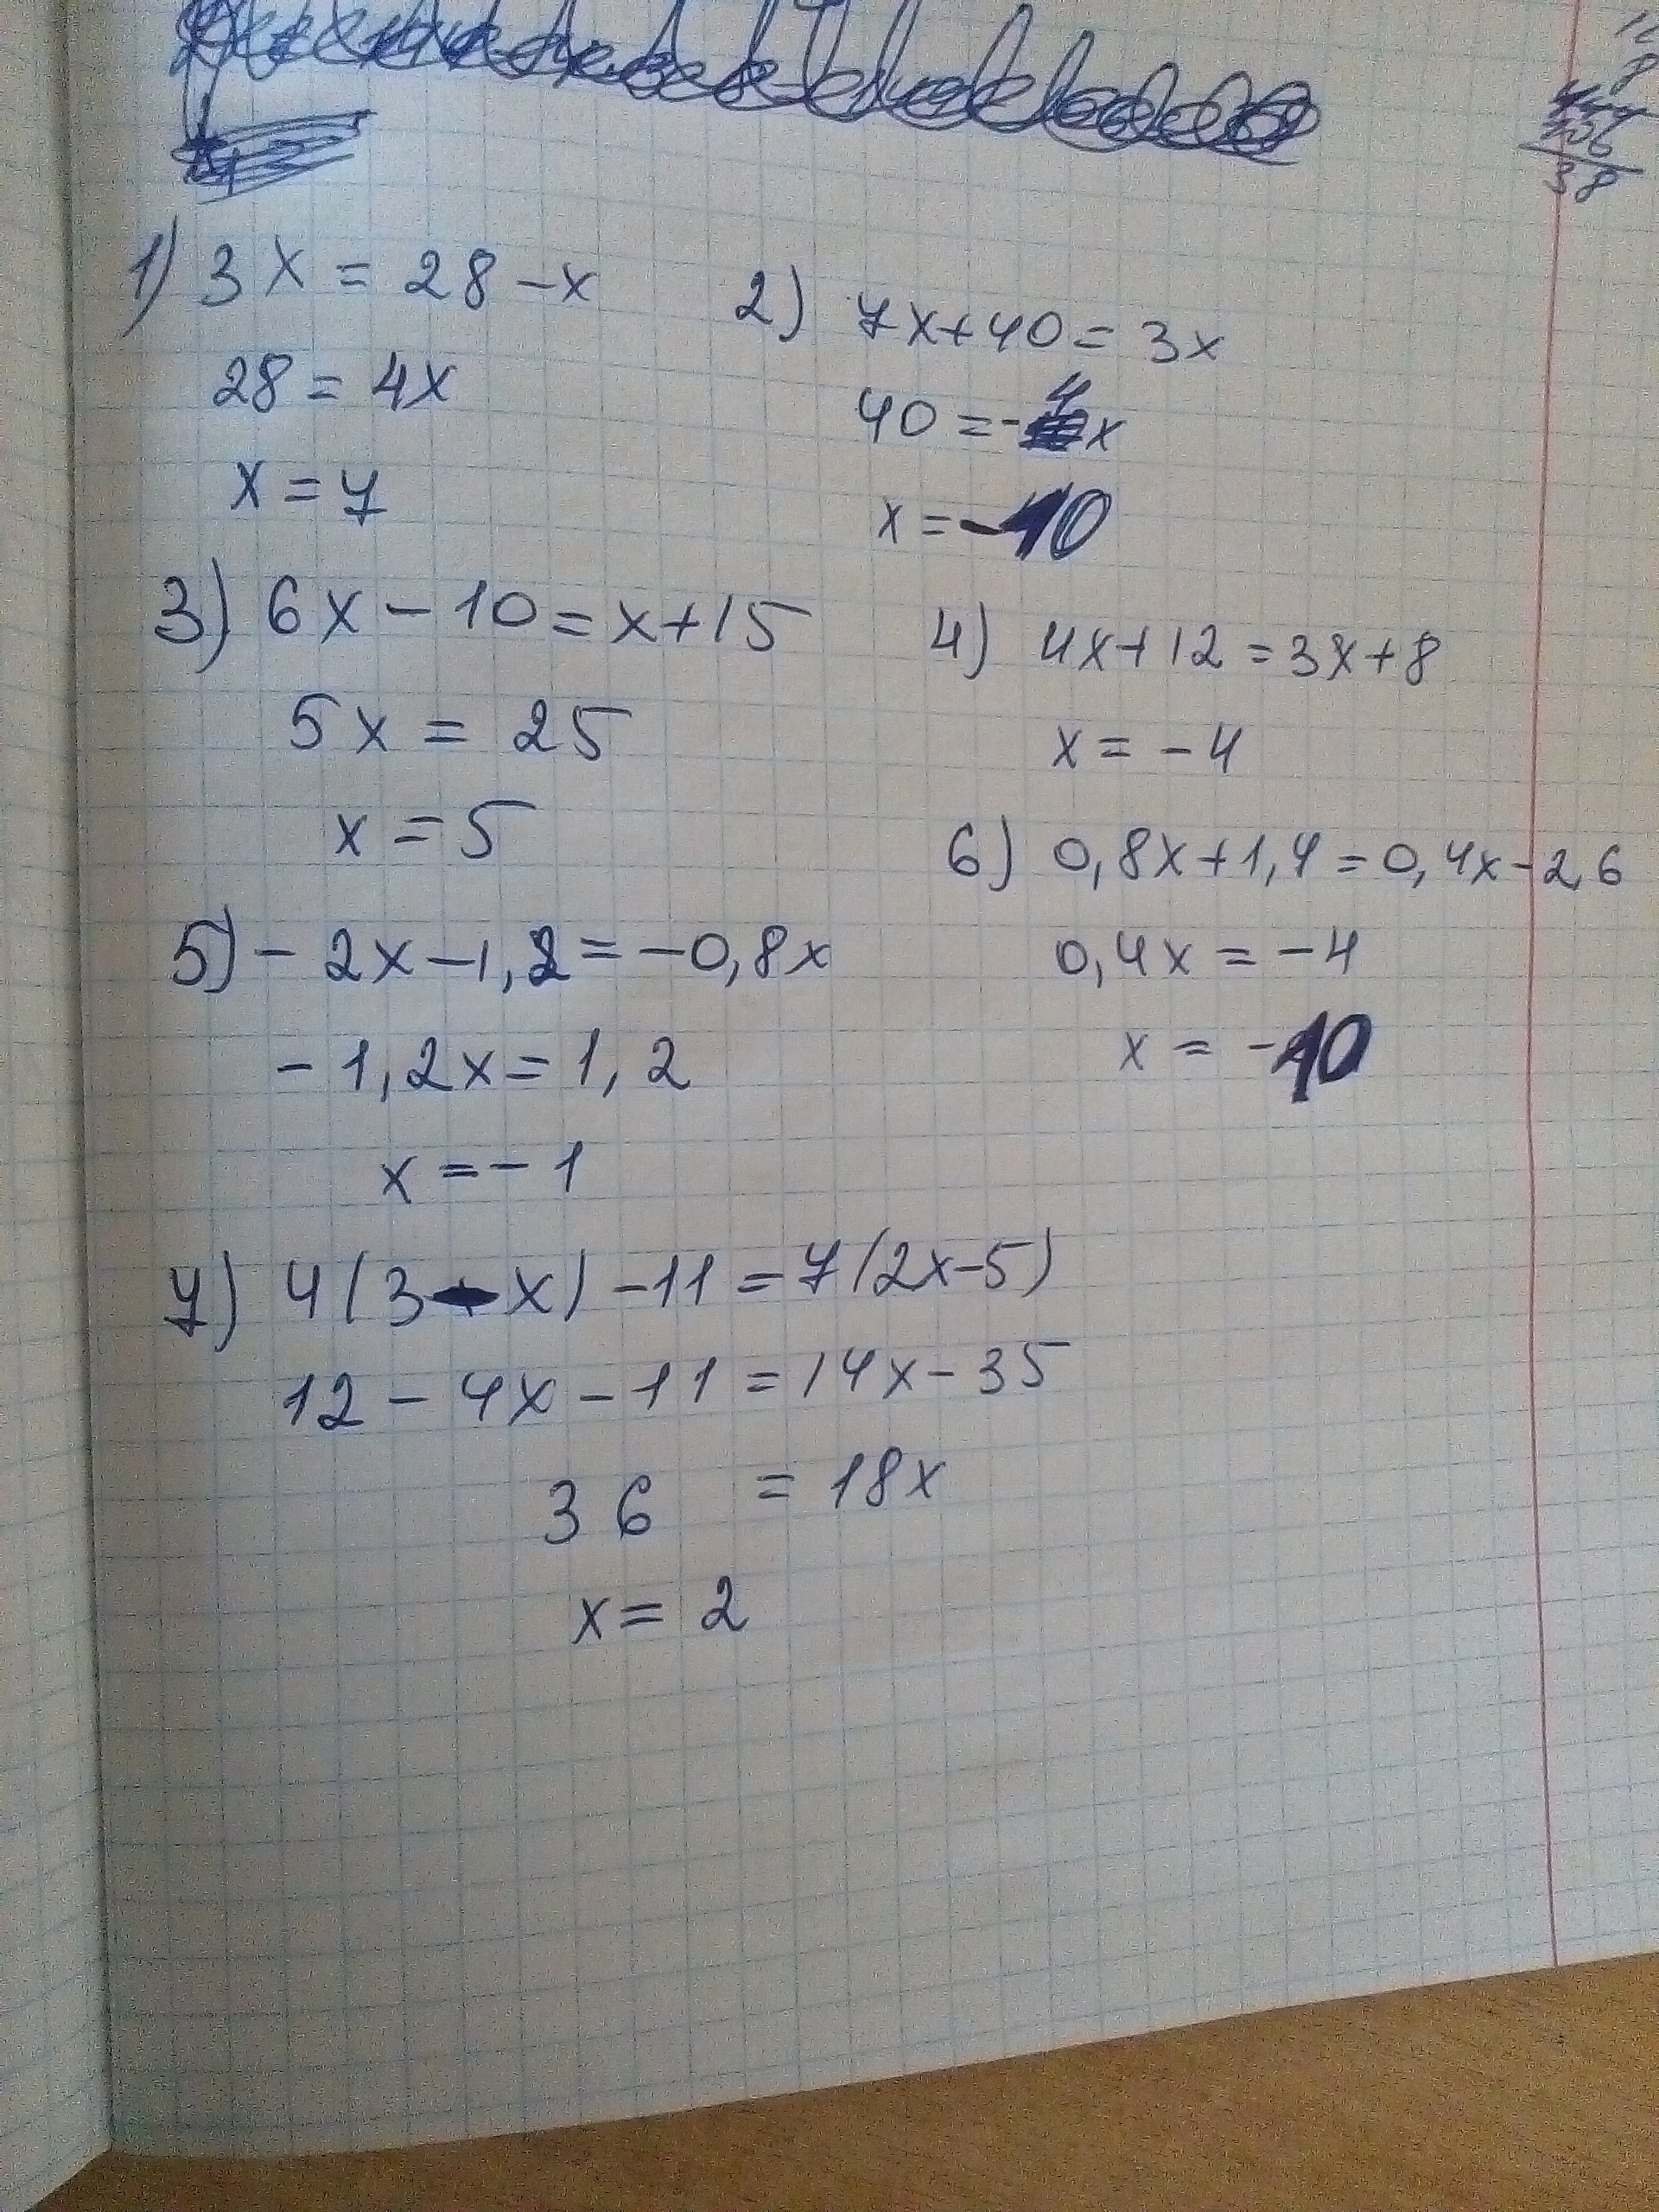 1) 3x = 28 - x
28 = 4x
x = 7
2) 7x + 40 = 3x
40 = -4x
x = -10
3) 6x - 10 = x + 15
5x = 25
x = 5
4) 4x + 12 = 3x + 8
x = -4
5) - 2x - 1,2 = -0,8x
- 1,2x = 1,2
x = - 1
6) 0,8x + 1,4 = 0,4x - 2,6
0,4x = -4
x = -10
7) 4(3 - x) - 11 = 7(2x - 5)
12 - 4x - 11 = 14x - 35
36 = 18x
x = 2
38